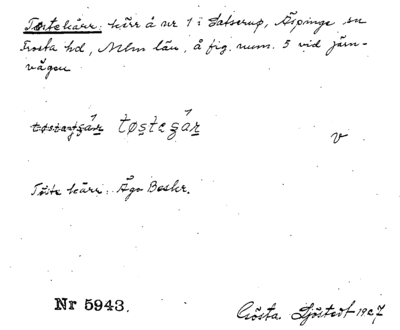 Tostekärr: kärr å nr 1 i Satserup, Äspinge sn
Frosta hd, Mlm län, å fig. num. 5 vid järn-
vägen
tøstegár v
Toste kärr: Äga Beskr.
Nr 5943. Gösta Sjöstedt 1927